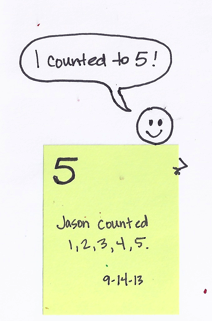 I counted to 5!
5
Jason counted
1, 2, 3, 4, 5.
9-14-13